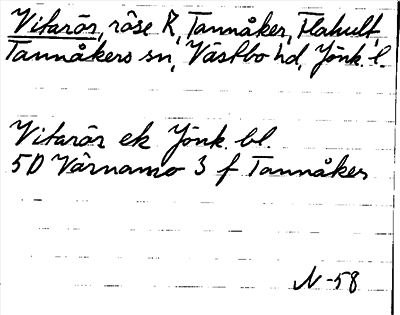 Vitarör, röse R, Tannåker, Flahult,
Tannåkers sn, Västbo hd, Jönk. l.
Vitarör ek Jönk. bl.
5D Värnamo 3 f Tannåker
N-58